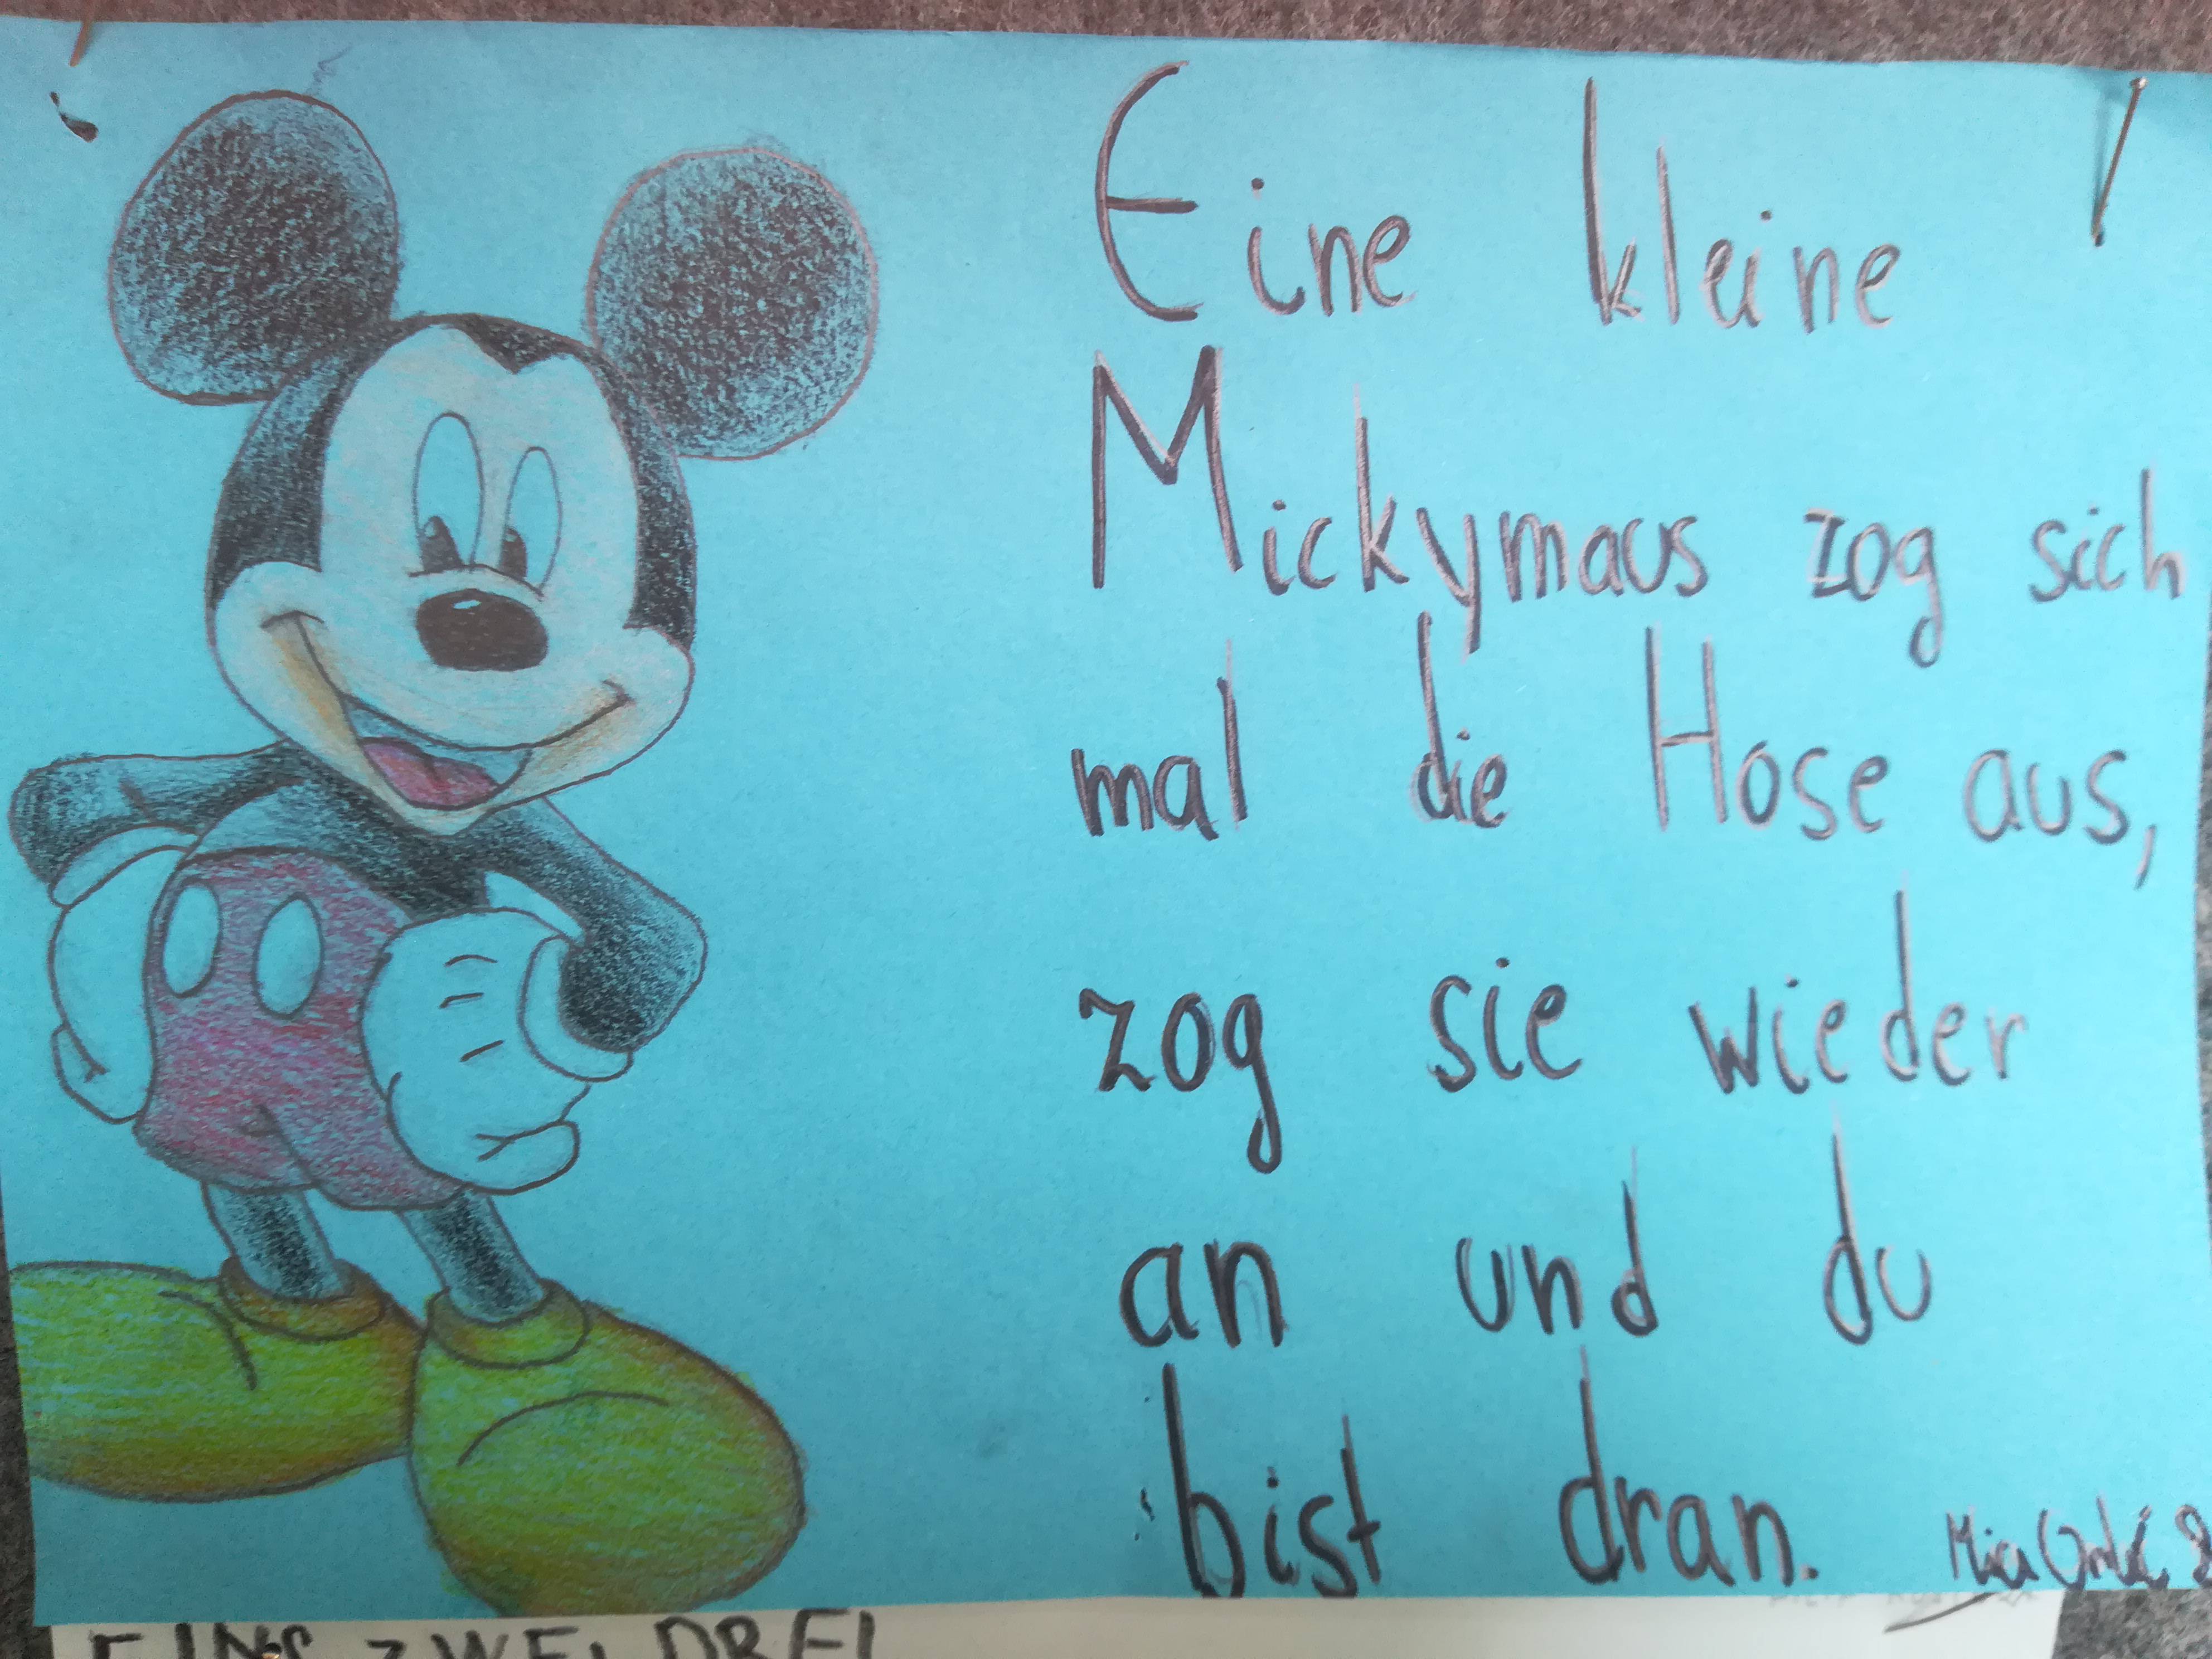 Eine kleine
Mickymaus zog sich
mal die Hose aus,
zog sie wieder
an und du
bist dran.
EINS ZWEI DREI